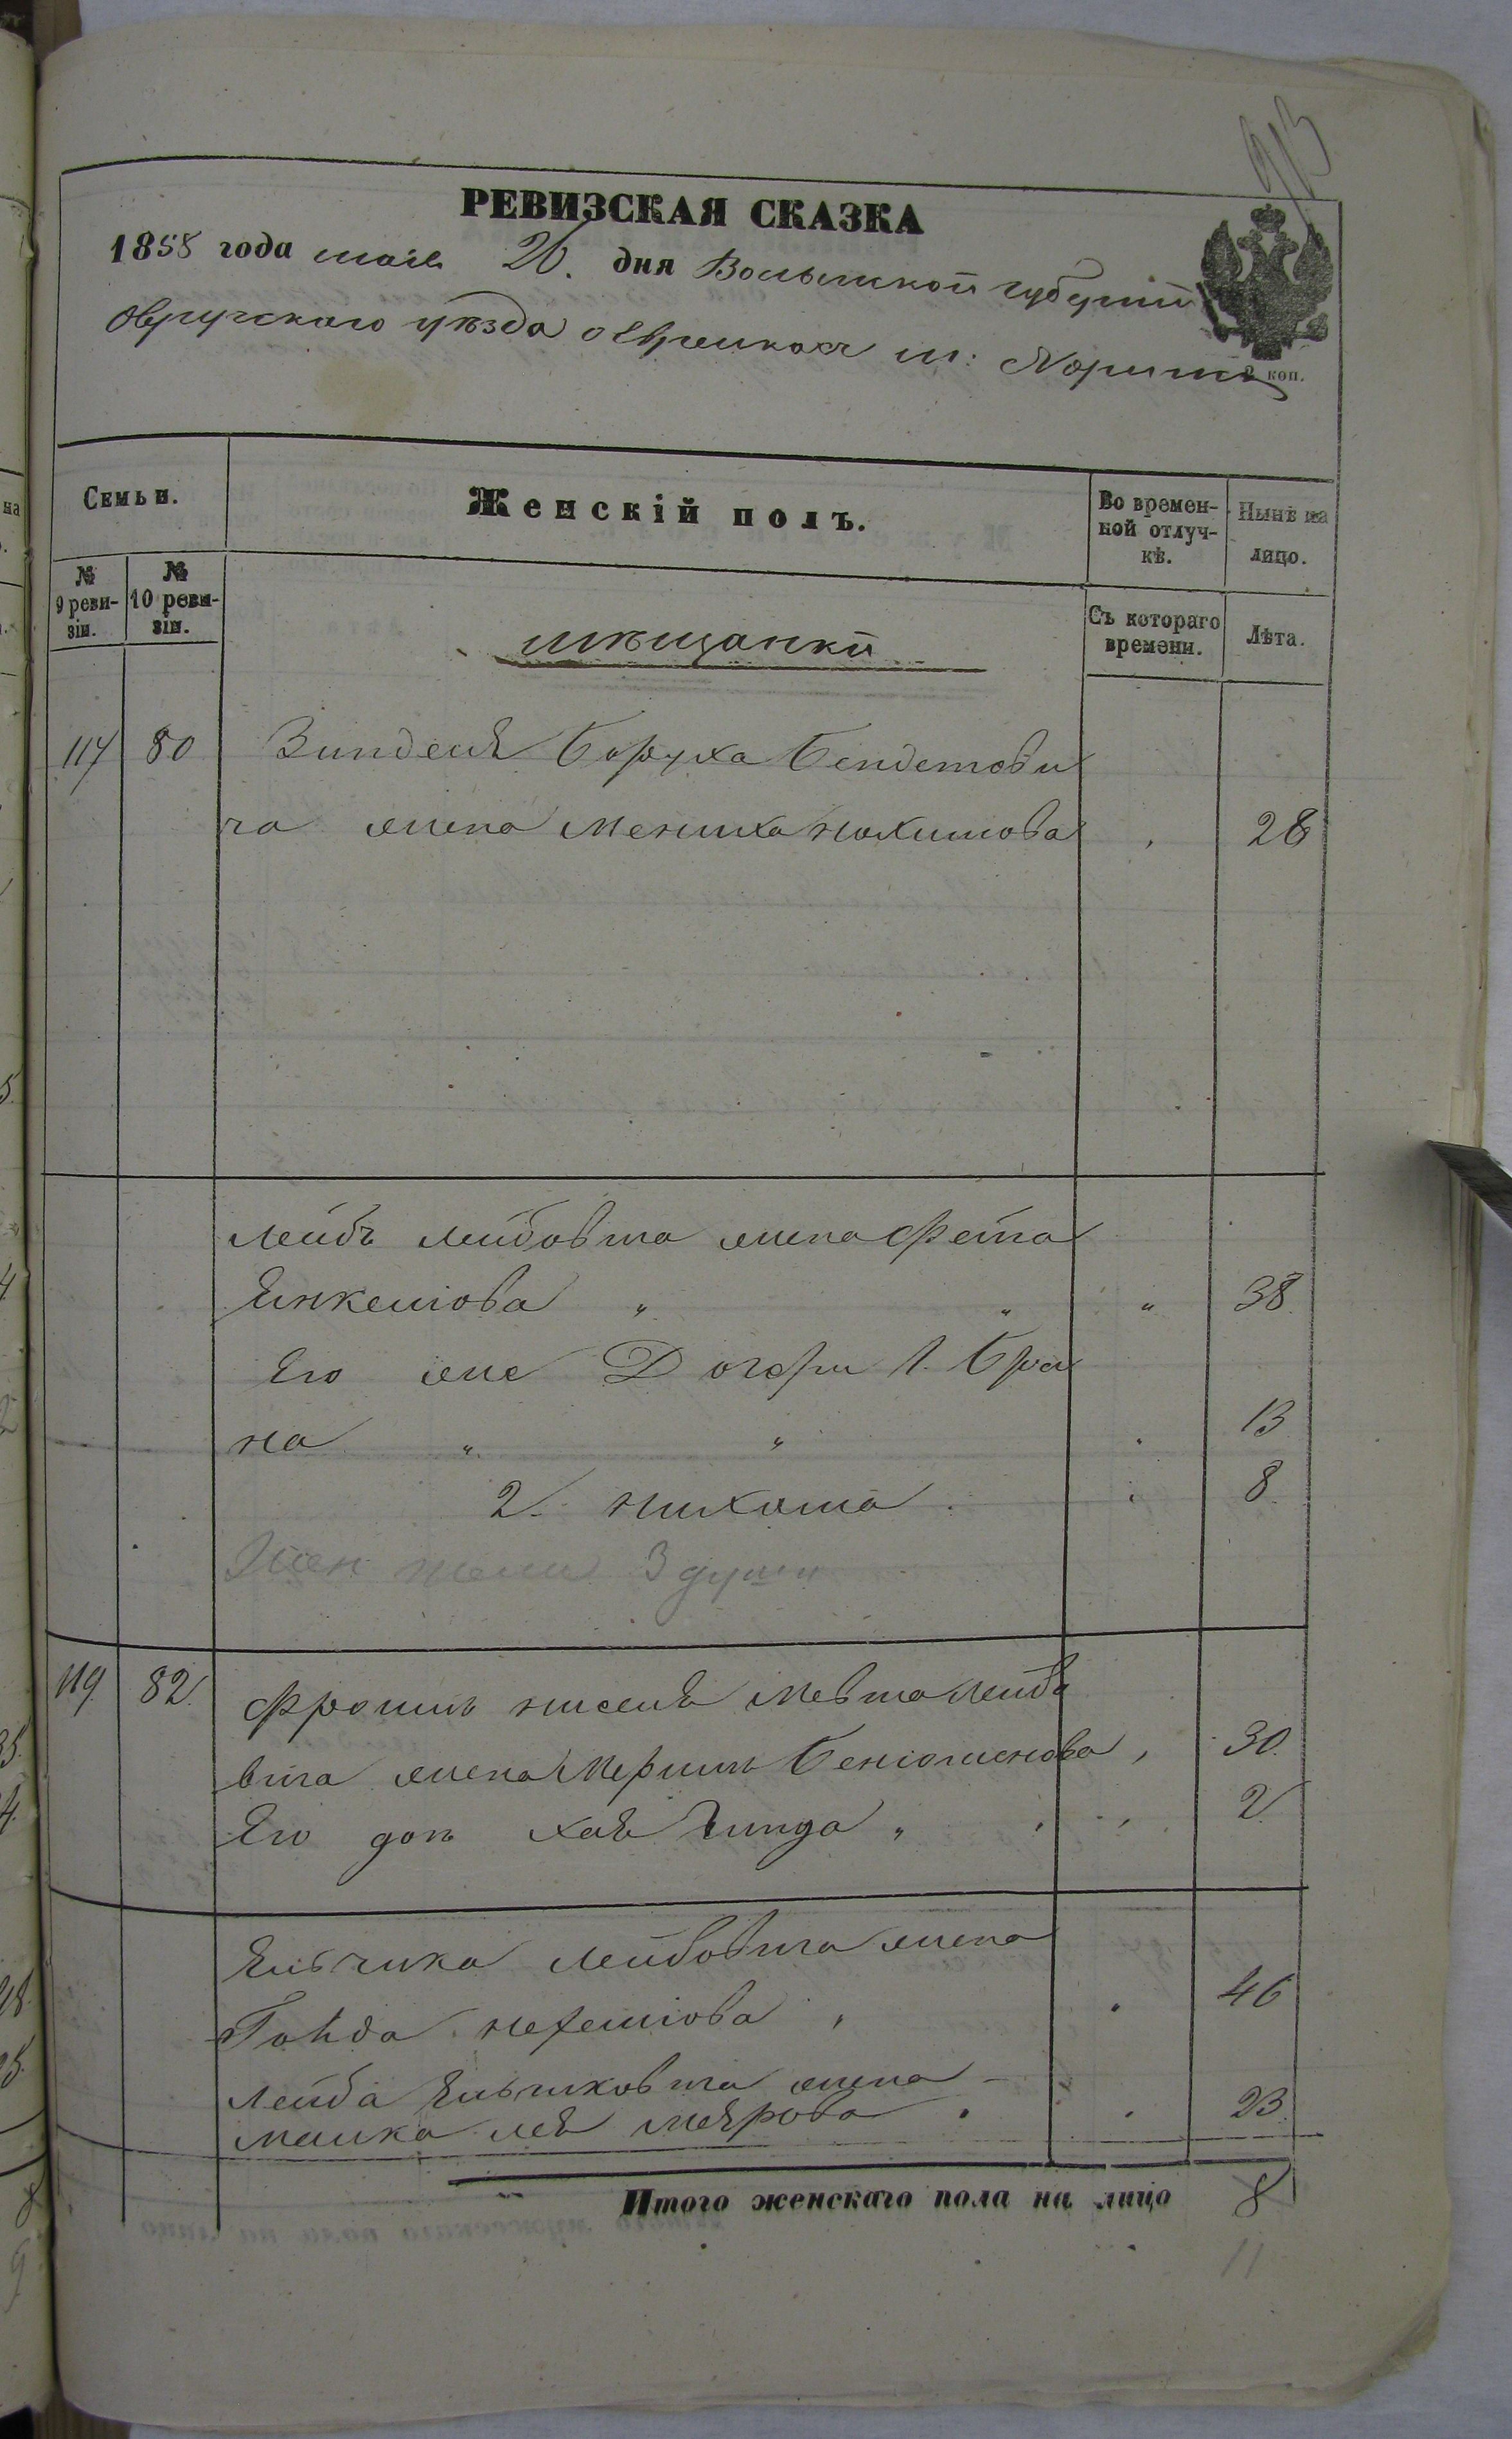 913
РЕВИЗСКАЯ СКАЗКА
1858 года мая 20. дня Волынской губерніи
Овручскаго уѣзда о Евреикахъ м: Норинъ
2 коп.
Семьи.
Женскій полъ.
Во времен-
ной отлуч-
кѣ.
Нынѣ на
лицо.
№
9 реви-
зіи.
№
10 реви-
зіи.
Съ котораго
времени.
Лѣта.
мѣщанки
117 80 Зинделя Боруха Бендетови
ча жена Мениха Нохимова 28
Лейбъ Лейбовича жена Фейга
Янкеліова " " " 38
Его же Дочери 1. Бра
на " " 13
2. Нихома 8
Жен пола 3 души
119 82 ФроимъНиселя Мевша Лейбо
вича жена Меримъ Беніоминова 30
Его дочь Хая Гинда " 2
Ельчика Лейбовича жена
Гольда Нехеміова 46
Лейба Ельчиковича жена
Малка Лея Меярова 23
Итого женскаго пола на лицо 8
11